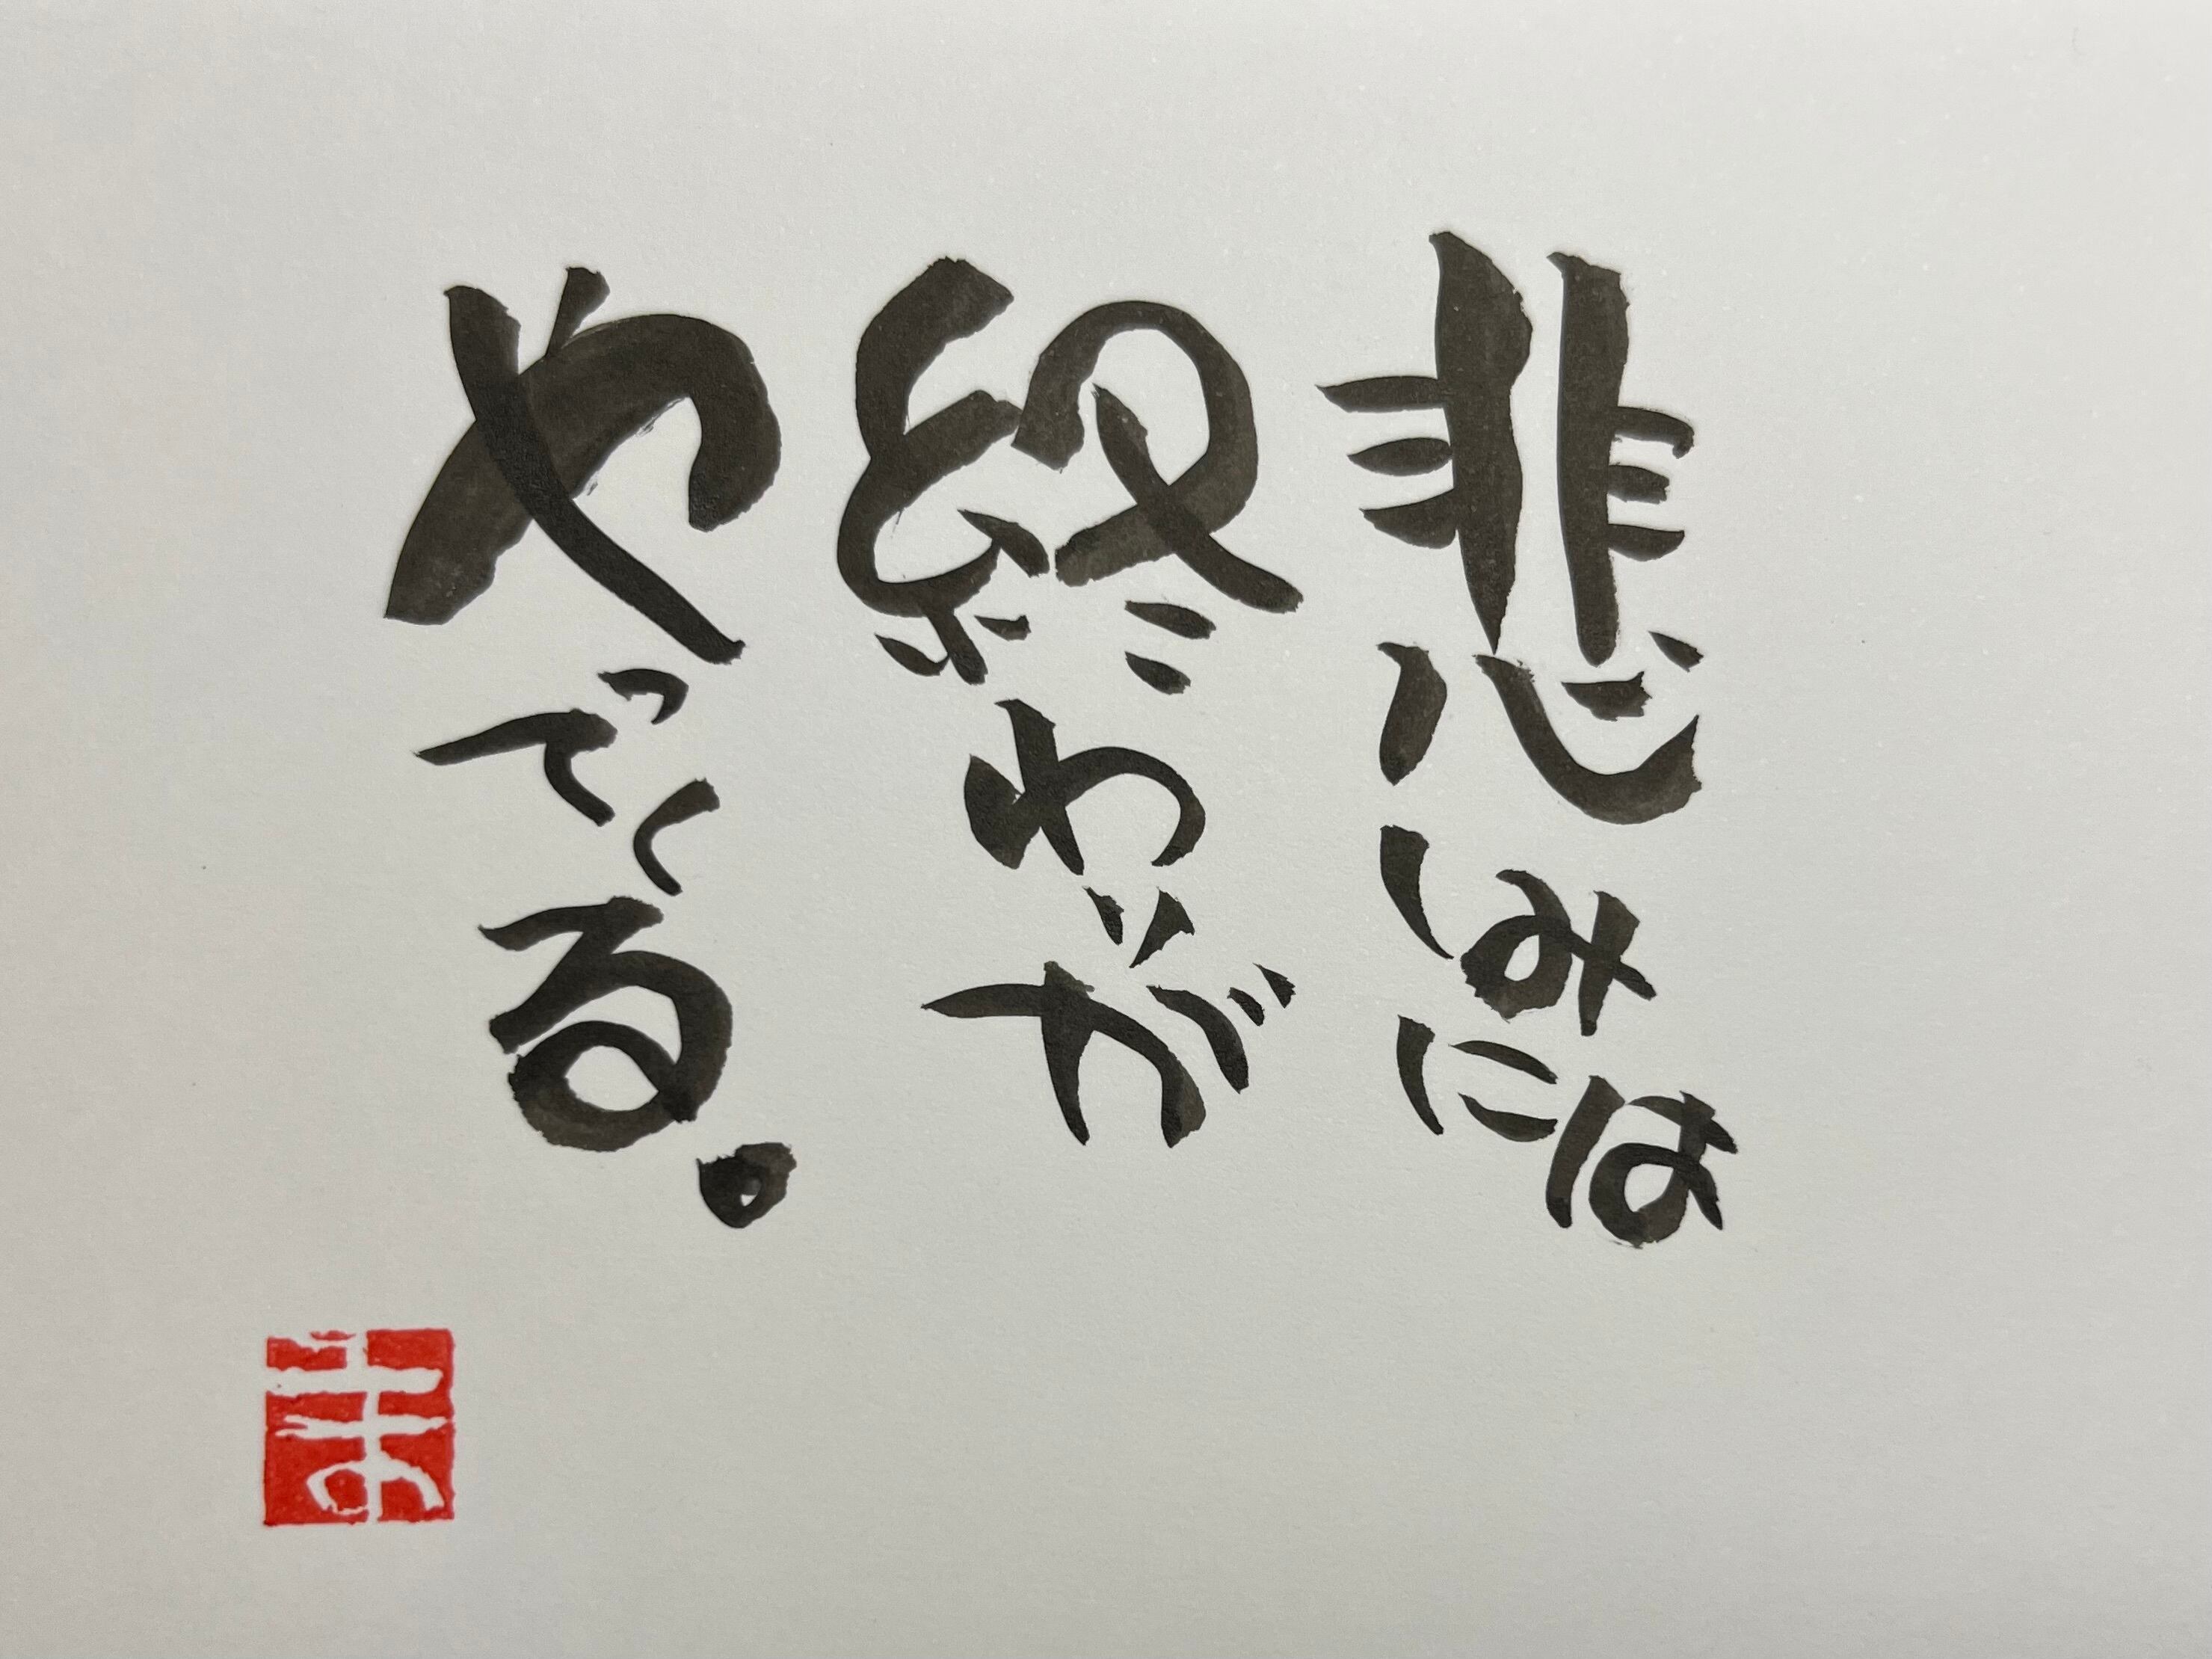 悲しみには
終わりが
やってくる。